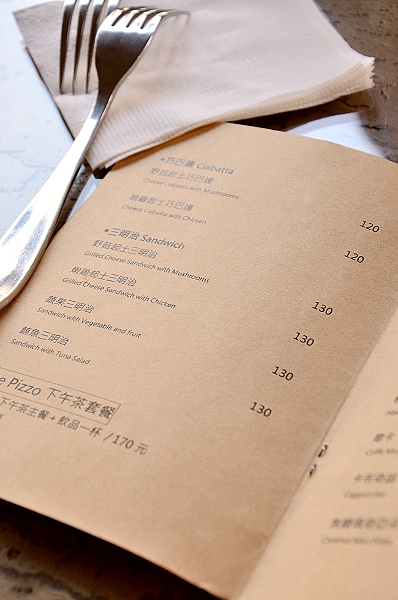 •巧巴達 Ciabatta
野菇起士巧巴達
Cheese Ciabatta with Mushrooms 120
嫩雞起士巧巴達
Cheese Ciabatta with Chicken 120
•三明治 Sandwich
野菇起士三明治
Grilled Cheese Sandwich with Mushrooms 130
嫩雞起士三明治
Grilled Cheese Sandwich with Chicken 130
蔬果三明治
Sandwich with Vegetable and fruit 130
鮪魚三明治
Sandwich with Tuna Salad 130
e Pizzo 下午茶套餐
下午茶主餐+飲品一杯 /170 元
摩卡
Caffe Mo
卡布奇諾
Cappuccino
焦糖瑪奇朵
Caramel Macchiato